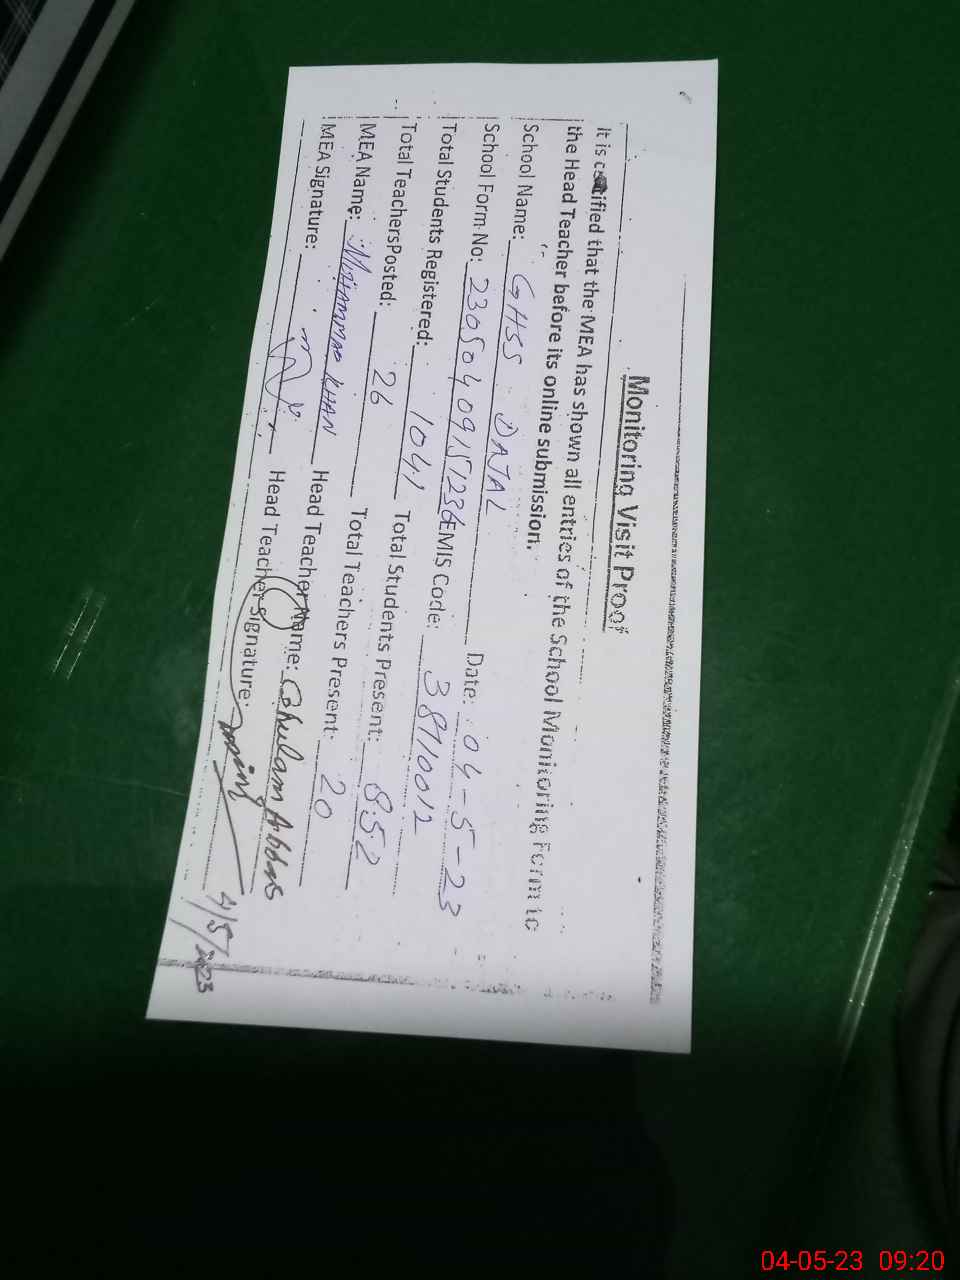 Monitoring Visit Proof
It is certified that the MEA has shown all entries of the School Monitoring Form to
the Head Teacher before its online submission.
School Name: GHSS DAJAL Date: 04-5-23
School Form No: 23050409151236 EMIS Code: 38110012
Total Students Registered: 1041 Total Students Present: 852
Total TeachersPosted: 26 Total Teachers Present: 20
MEA Name: MUHAMMAD KHAN Head Teacher Name: Ghulam Abbas
MEA Signature: Head Teacher Signature:
4/5/2023
04-05-23 09:20